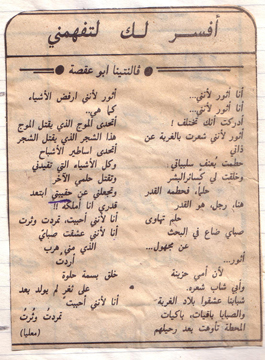 أفسر لك لتفهمني
ڤالنتينا ابو عقصة
أنا أثور لأنني...
أنا أثور لأنني...
أدركت أنك تختلف !
أثور لأنني شعرت بالغربة عن
ذاتي
حطمت بعنف سلبياتي
وخلقت لي كسائر البشر
حلماً، فحطمه القدر
هنا، رجل، هو القدر
حلم تهاوى
صباي ضاع في البحث
عن مجهول...
أثور...
لأن أمي حزينة
وأبي شاب شعره.
شبابنا عشقوا بلاد الغربة
والصبايا باقيات، باكيات
المحطة تأوهت بعد رحيلهم
أثور لأنني ارفض الأشياء
كما هي..
أتحدى الموج الذي يقتل الموج
هذا الشجر الذي يقتل الشجر
أتحدى اساطير الأشباح
وكل الأشياء التي تقيدني
وتقتل حلمي الآخر
وتجعلني عن حقيبتي ابتعد
قدري انا أملكه !!
أنا لأنني أحببت، تمردت وثرت
أنا لأنني عشقت صباي
الذي مني هرب
أردت
خلق بسمة حلوة
على ثغر لم يولد بعد
أنا لأنني أحببت
تمردت وثرت
(معليا)